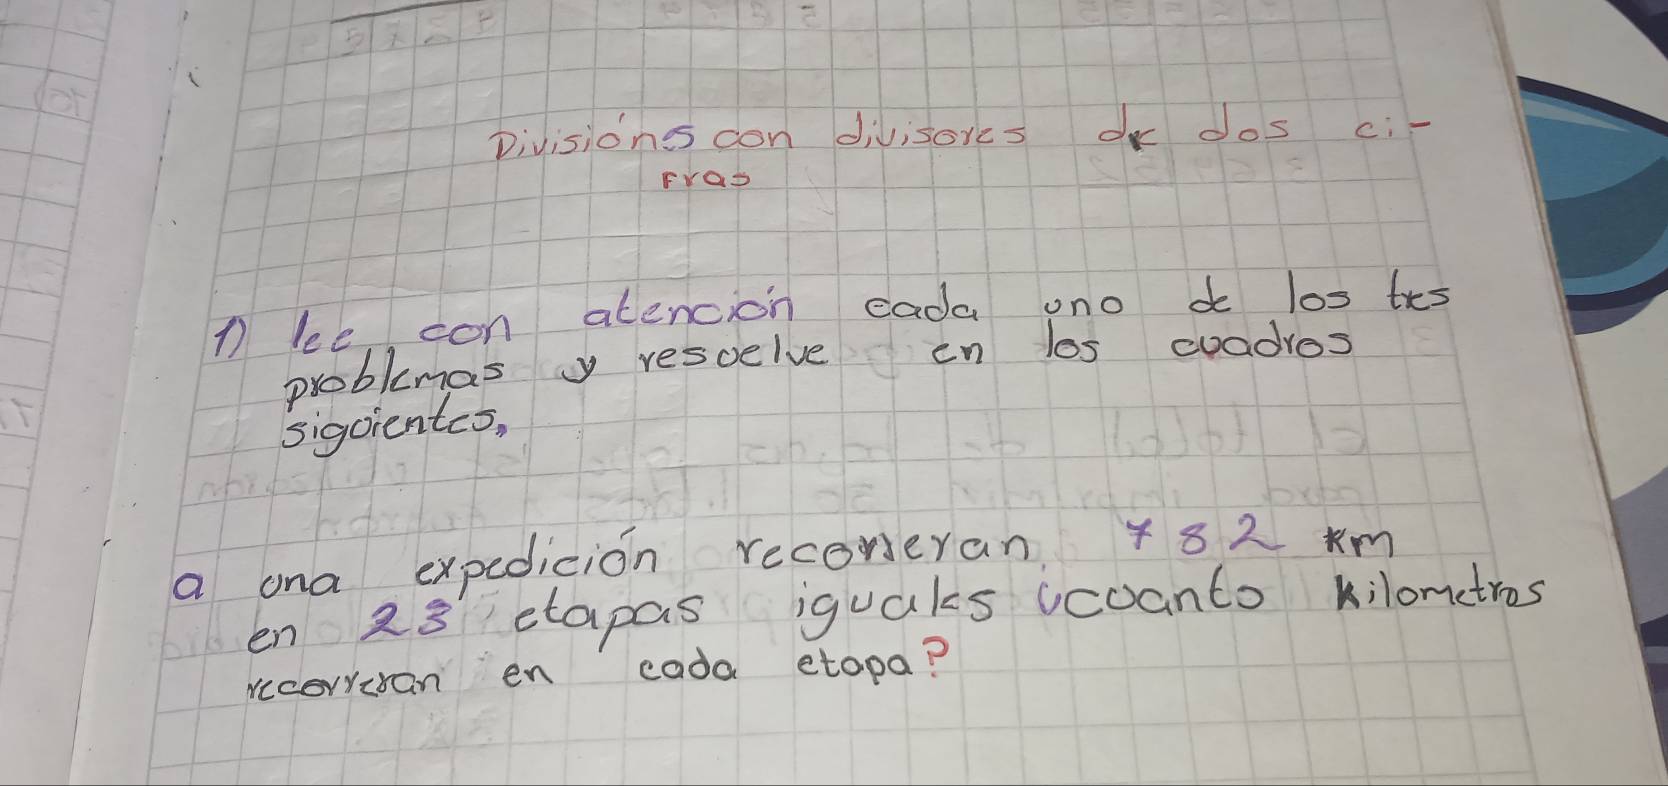 Divisións con divisores de dos ci-
fras
1) lee con atención cada uno de los tres
problemas y resuelve en los cuadros
siguientes,
a una expedición recorreran 782 km
en 23 etapas iguales ¿cuanto kilometros
recorreran en cada etapa?